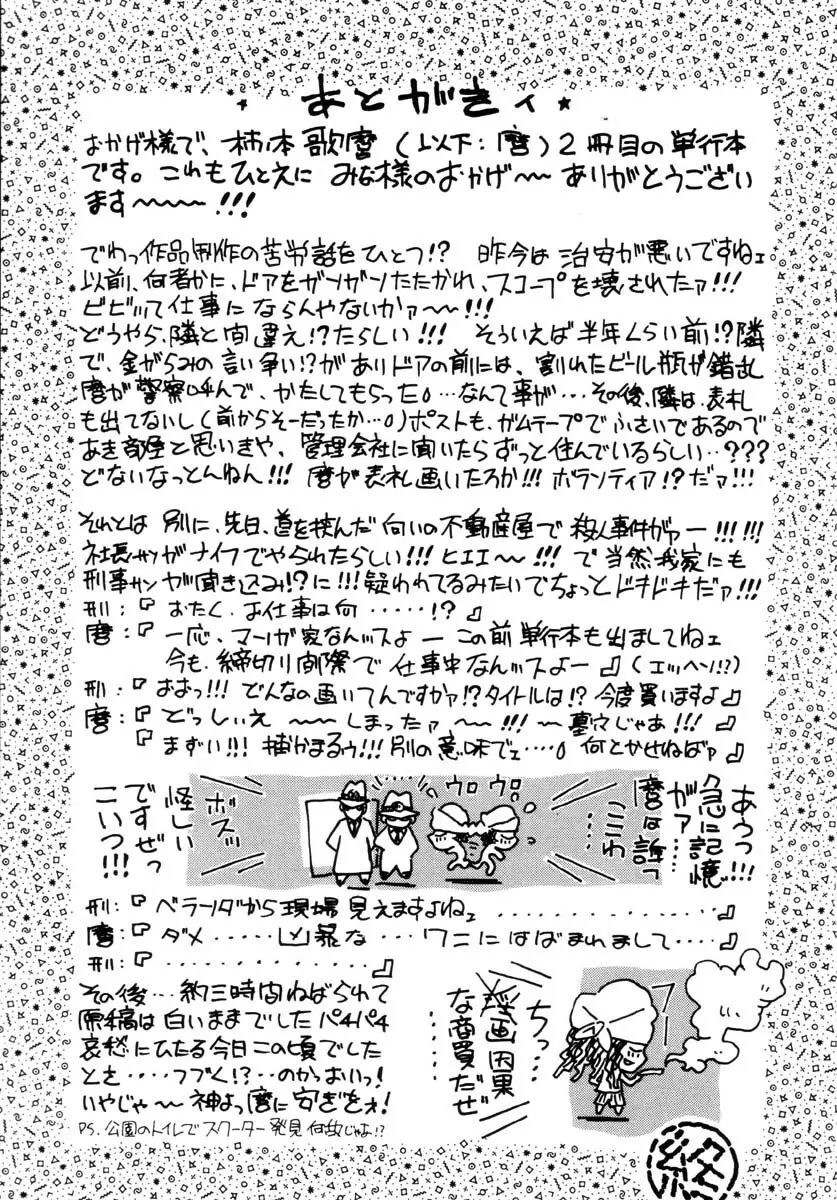 あとがきィ
おかげ様で、柿ノ本歌麿(以下:麿)2冊目の単行本
です。これもひとえに みな様のおかげ〜〜ありがとうござい
ます〜〜〜!!!
でわっ作品制作の苦労話をひとつ!? 昨今は 治安が悪いですねェ
以前、何者かに、ドアをガンガンたたかれ、スコープを壊されたァ!!!
ビビッて仕事に ならんやないかァ〜〜!!!
どうやら、隣と間違え!?たらしい!!! そういえば半年くらい前!?隣
で、金がらみの言い争い!?がありドアの前には、割れたビール瓶が錯乱
麿が警察呼んで、かたしてもらった。…なんて事が…その後、隣は、表札
も出てないし(前からそーだったか…。)ポストも、ガムテープでふさいであるので
あき部屋と思いきや、管理会社に聞いたらずっと住んでいるらしい…???
どないなっとんねん!!! 麿が表札画いたろか!!! ボランティア!?だァ!!!
それとは 別に、先日、道を挟んだ向いの不動産屋で 殺人事件がァー!!!!!!
社長サンがナイフでやられたらしい!!!ヒエエ〜〜!!! で当然我家にも
刑事サンが聞き込み!?に!!!疑われてるみたいでちょっとドキドキだァ!!!
刑:『 おたく、お仕事は何……!? 』
麿:『 一応、マンガ家なんッスよー この前 単行本も出ましてねェ
今も、締切り間際で 仕事中なんッスよー 』(エッヘン!?)
刑:『おおっ!!! どんなの画いてんですかァ!?タイトルは!?今度買いますよ』
麿:『 どっしぃえ 〜〜しまったァ 〜〜!!! 〜墓穴じゃあ!!!
『まずい!!! 捕かまるゥ!!!別の意味でェ…。何とかせねばァ』
あうっっ!!!
急に記憶
がァ……
麿は誰っ
ここわ
ウロ ウロ
ボスッ
怪しい
ですぜっ
こいつ!!!
刑:『 ベランダから 現場 見えますよねェ ………… 』
麿:『 ダメ……凶暴な…ワニにはばまれまして…. 』
刑:『…………』
その後…約三時間ねばられて
原稿は白いままでしたパチパチ
哀愁にひたる今日この頃でした
とさ‥‥つづく!?‥のかっおいっ!
いやじゃ〜神よっ麿に安ぎをォ!
PS. 公園のトイレでスクーター発見 何故じゃよ!?
フー
ちっ…
淫画因果
な商買だぜ
……